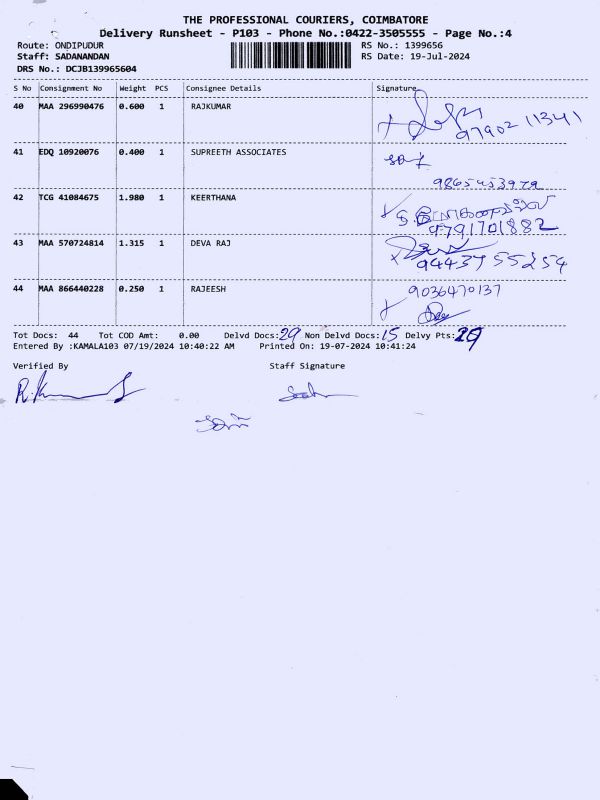 THE PROFESSIONAL COURIERS, COIMBATORE
Delivery Runsheet - P103 - Phone No.:0422-3505555 - Page No.:4
Route: ONDIPUDUR RS No.: 1399656
Staff: SADANANDAN RS Date: 19-Jul-2024
DRS No.: DCJB139965604
S No Consignment No Weight PCS Consignee Details Signature
40 MAA 296990476 0.600 1 RAJKUMAR
97902 11341
41 EDQ 10920076 0.400 1 SUPREETH ASSOCIATES
9865453979
42 TCG 41084675 1.980 1 KEERTHANA
9791701882
43 MAA 570724814 1.315 1 DEVA RAJ
9443755254
44 MAA 866440228 0.250 1 RAJEESH 9036470137
Tot Docs: 44 Tot COD Amt: 0.00 Delvd Docs:29 Non Delvd Docs:15 Delvy Pts:29
Entered By :KAMALA103 07/19/2024 10:40:22 AM Printed On: 19-07-2024 10:41:24
Verified By Staff Signature